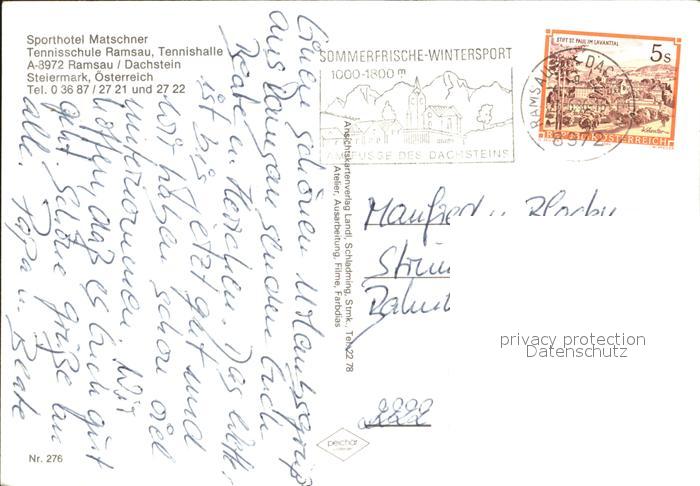 Sporthotel Matschner
Tennisschule Ramsau, Tennishalle
A-8972 Ramsau / Dachstein
Steiermark, Österreich
Tel. 0 36 87 / 27 21 und 27 22
SOMMERFRISCHE-WINTERSPORT
1000-1800 m
AM FUSSE DES DACHSTEINS
RAMSAU AM DACHSTEIN
8972
STIFT ST. PAUL IM LAVANTTAL
5 S
REPUBLIK ÖSTERREICH
Einen schönen Urlaubsgruß
aus Ramsau senden Euch
Beate u. Herrchen. Das Wetter
ist bis jetzt gut und
wir haben schon viel
unternommen. Wir
hoffen, daß es Euch gut
geht. Schöne Grüße an
alle. Papa u. Beate
Ansichtskartenverlag Landl, Schladming, Stmk., Tel. 22 78
Atelier, Ausarbeitung, Filme, Farbdias
Manfred u.
privacy protection
Datenschutz
peichar
Nr. 276